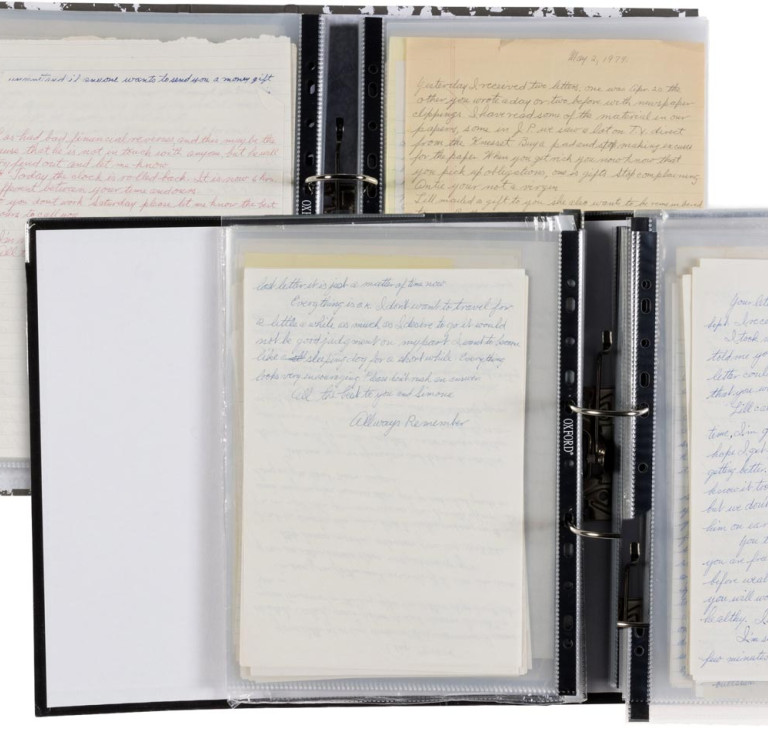 unsent and if anyone wants to send you a money gift
as had bad financial reverses, and this may be the
use that he is not in touch with anyone but he will
find out and let me know
Today the clock is rolled back. It is now 6 hrs
different between your time and ours
you dont work Saturday please let me know the best
May 2, 1979.
Yesterday I received two letters, one was Apr 22 the
other you wrote a day or two before with newspaper
clippings. I have read some of the material in our
papers, some in J.P. we saw a lot on T.V. direct
from the Knesset Guys find and stop making excuses
for the paper. When you get rich you now know that
you pick up obligations, one is gifts. Stop complaining
your not a virgin.
Lill mailed a gift to you she also want to be remembered
OXF
last letter it is just a matter of time now
Everything is o.k. I dont want to travel for
a little while, as much as I desire to go it would
not be good judgment on my part. I want to become
like a sleeping dog for a short while. Everything
looks very encouraging. Please dont rush in answer
All the best to you and Simone
Allways Remember
OXFORD®
Your let
I rece
I took
told me yo
letter coul
that you w
Lill ca
time, I'm g
hope I get
getting better.
know it too
but we don't
him on us
You t
you are fre
before weal
you will wo
healthy. I
I'm s
few minutes